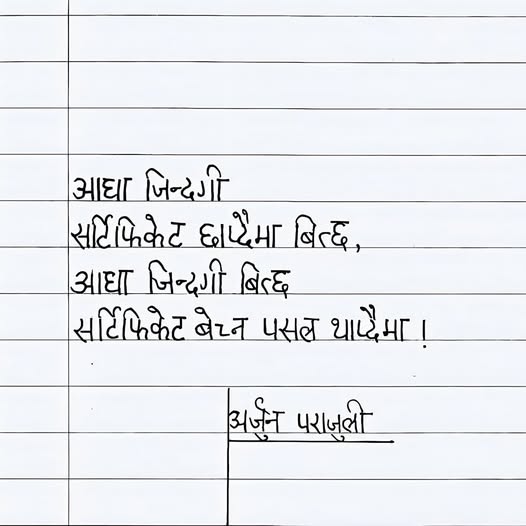 आधा जिन्दगी
सर्टिफिकेट छाप्दैमा बित्छ,
आधा जिन्दगी बित्छ
सर्टिफिकेट बेच्न पसल थाप्दैमा !
अर्जुन पराजुली